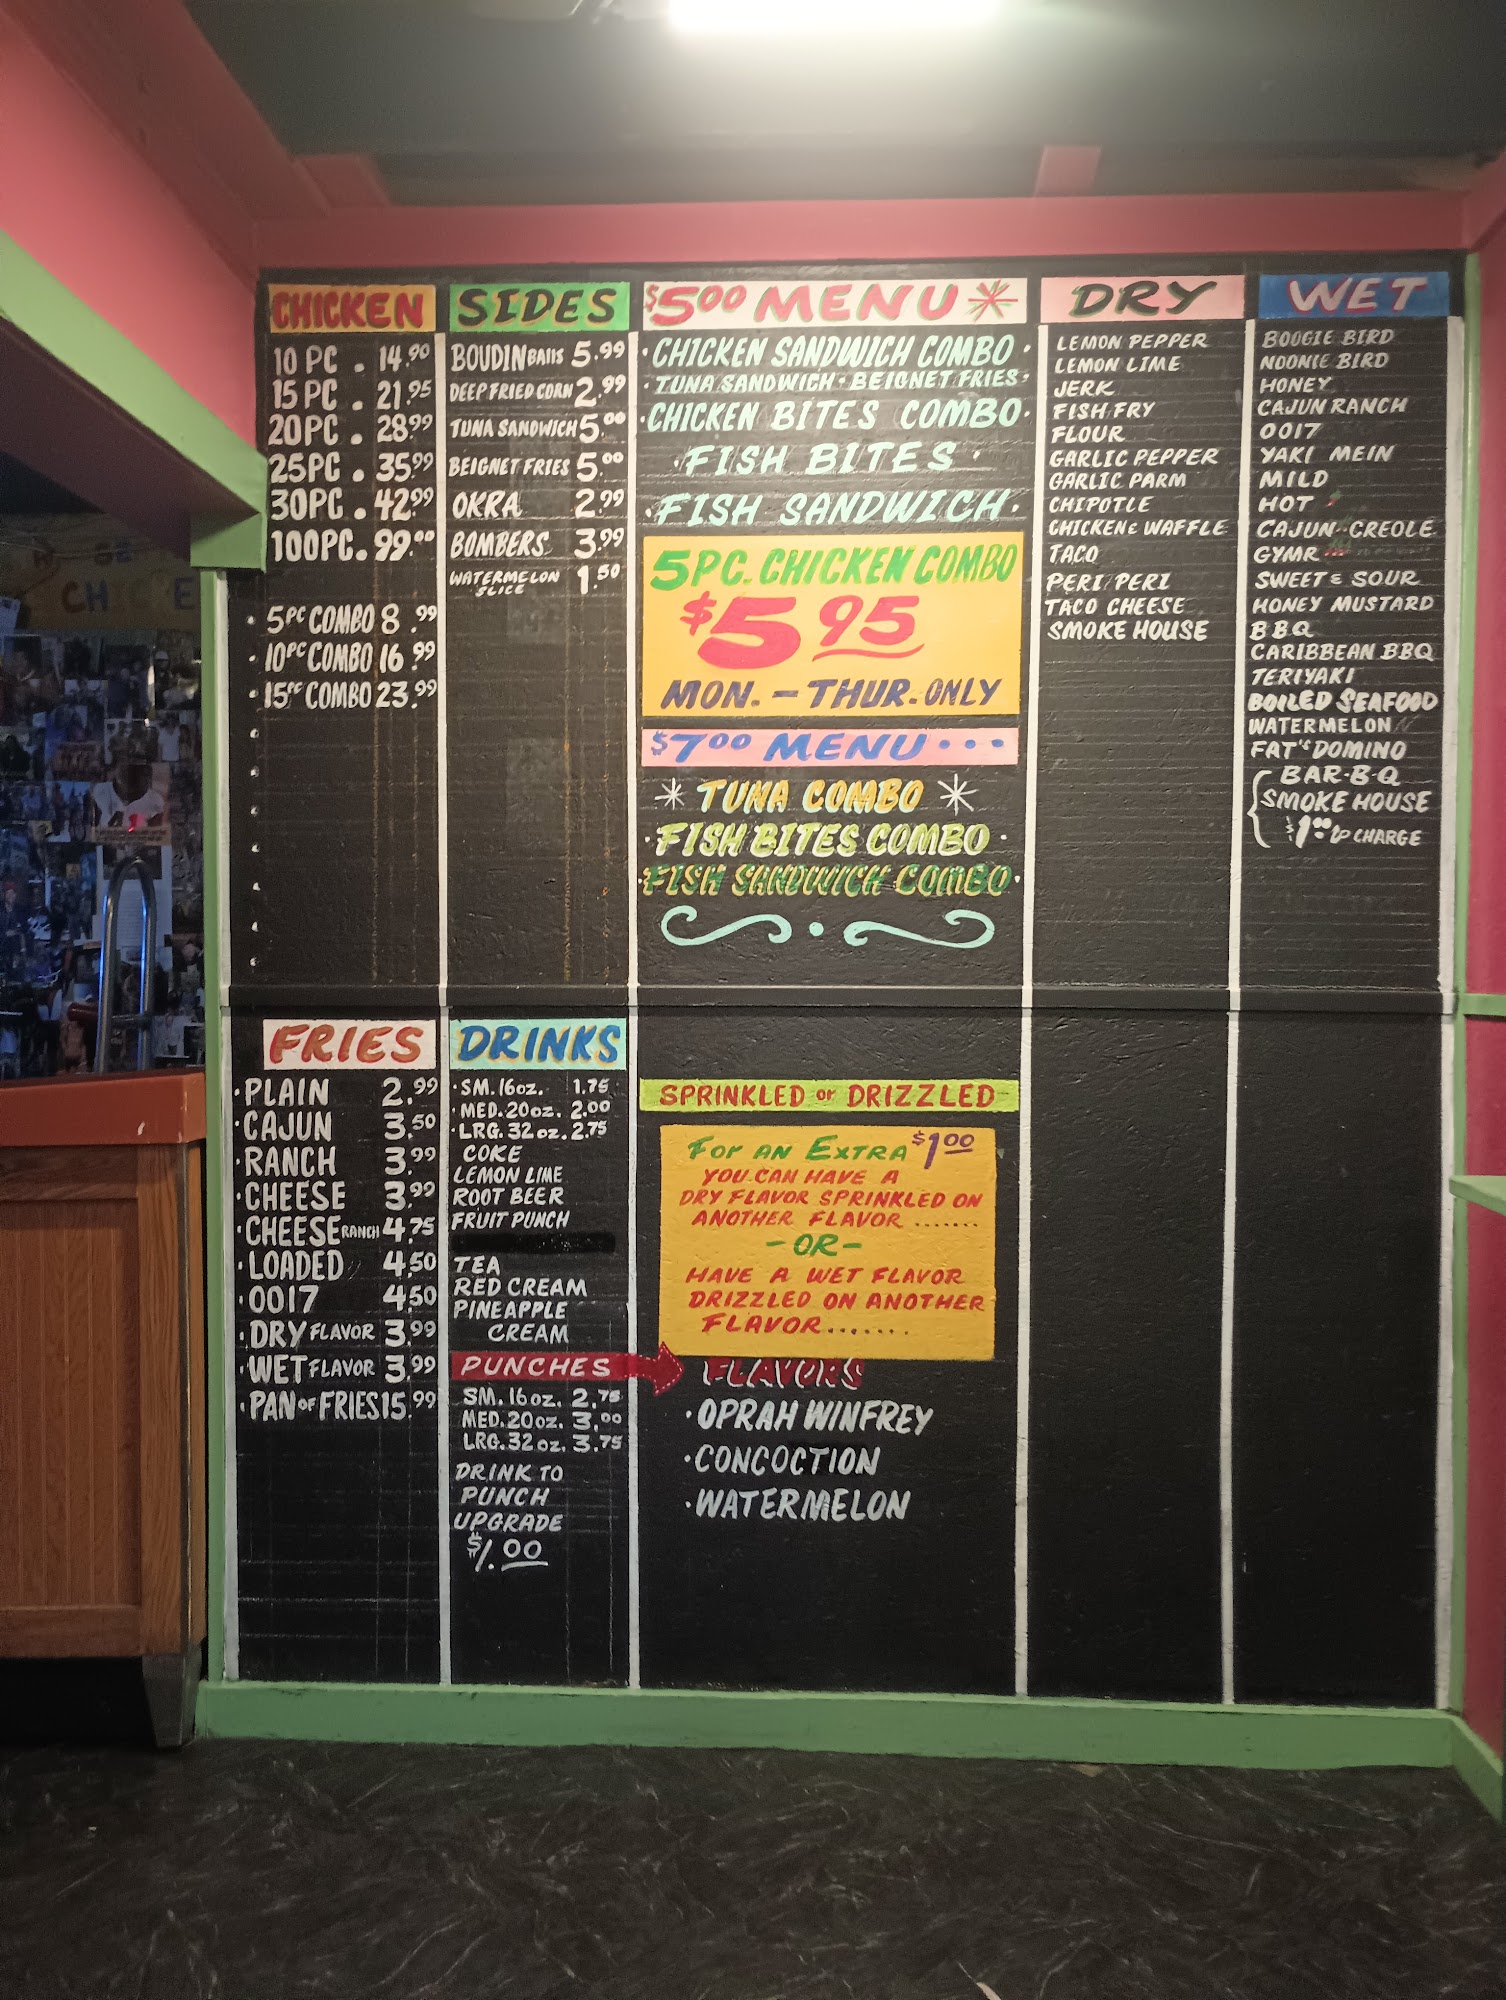 CHICKEN
10 PC . 14.90
15 PC . 21.95
20 PC . 28.99
25 PC . 35.99
30 PC . 42.99
100 PC . 99.00
· 5PC COMBO 8.99
· 10PC COMBO 16.99
· 15PC COMBO 23.99
SIDES
BOUDIN Balls 5.99
DEEP FRIED CORN 2.99
TUNA SANDWICH 5.00
BEIGNET FRIES 5.00
OKRA 2.99
BOMBERS 3.99
WATERMELON SLICE 1.50
$5.00 MENU *
· CHICKEN SANDWICH COMBO ·
· TUNA SANDWICH · BEIGNET FRIES ·
· CHICKEN BITES COMBO ·
· FISH BITES ·
· FISH SANDWICH ·
5 PC. CHICKEN COMBO
$5 95
MON. – THUR. ONLY
$7.00 MENU ...
* TUNA COMBO *
· FISH BITES COMBO ·
· FISH SANDWICH COMBO ·
DRY
LEMON PEPPER
LEMON LIME
JERK
FISH FRY
FLOUR
GARLIC PEPPER
GARLIC PARM
CHIPOTLE
CHICKEN & WAFFLE
TACO
PERI PERI
TACO CHEESE
SMOKE HOUSE
WET
BOOGIE BIRD
NOONIE BIRD
HONEY
CAJUN RANCH
0017
YAKI MEIN
MILD
HOT
CAJUN CREOLE
GYMR
SWEET & SOUR
HONEY MUSTARD
BBQ
CARIBBEAN BBQ
TERIYAKI
BOILED SEAFOOD
WATERMELON
FAT'S DOMINO
BAR-B-Q
SMOKE HOUSE
$1.00 CHARGE
FRIES
· PLAIN 2.99
· CAJUN 3.50
· RANCH 3.99
· CHEESE 3.99
· CHEESE RANCH 4.75
· LOADED 4.50
· 0017 4.50
· DRY FLAVOR 3.99
· WET FLAVOR 3.99
· PAN OF FRIES 15.99
DRINKS
· SM. 16 oz. 1.75
· MED. 20 oz. 2.00
· LRG. 32 oz. 2.75
COKE
LEMON LIME
ROOT BEER
FRUIT PUNCH
TEA
RED CREAM
PINEAPPLE
CREAM
PUNCHES
SM. 16 oz. 2.75
MED. 20 oz. 3.00
LRG. 32 oz. 3.75
DRINK TO
PUNCH
UPGRADE
$1.00
SPRINKLED or DRIZZLED
FOR AN EXTRA $1.00
YOU CAN HAVE A
DRY FLAVOR SPRINKLED ON
ANOTHER FLAVOR .......
– OR –
HAVE A WET FLAVOR
DRIZZLED ON ANOTHER
FLAVOR........
FLAVORS
· OPRAH WINFREY
· CONCOCTION
· WATERMELON